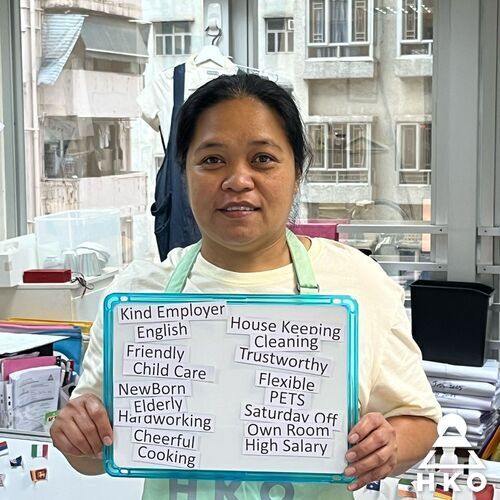 Kind Employer
English
Friendly
Child Care
NewBorn
Elderly
Hardworking
Cheerful
Cooking
House Keeping
Cleaning
Trustworthy
Flexible
PETS
Saturday Off
Own Room
High Salary
HKO
HKO
HKO